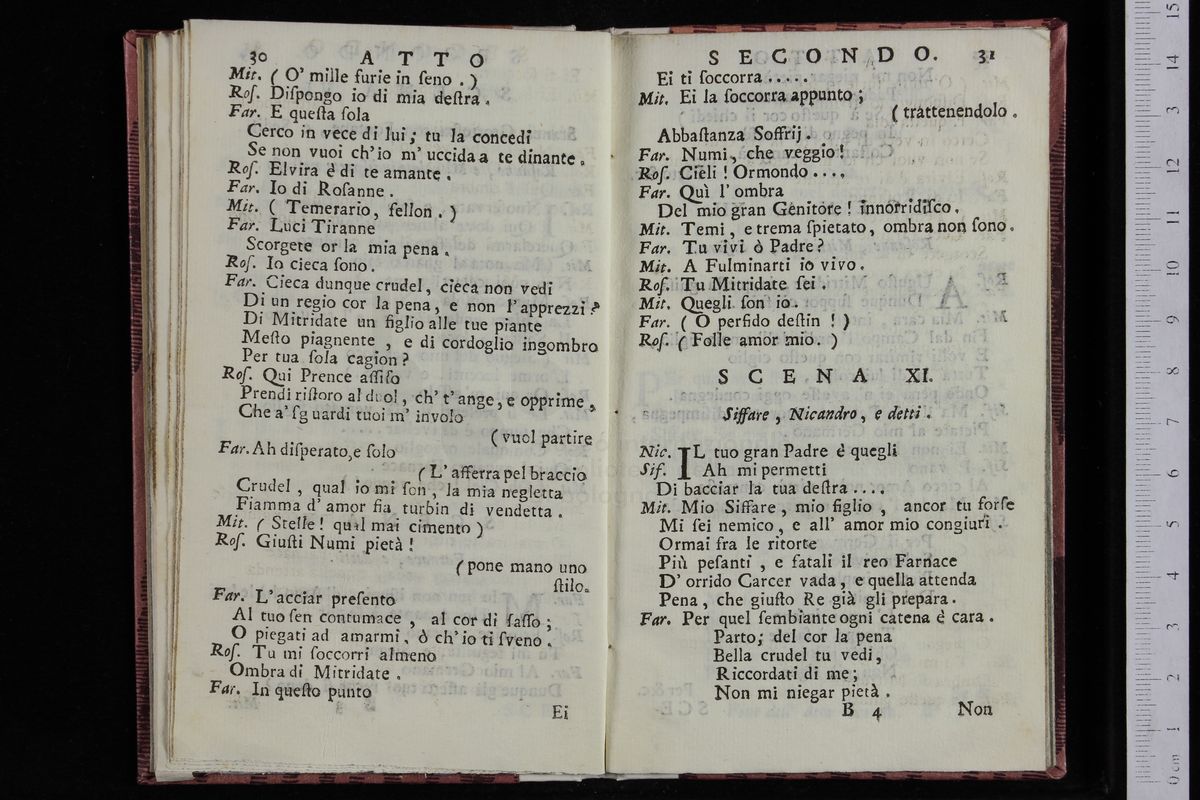 30 ATTO
Mit. ( O' mille furie in ſeno . )
Roſ. Diſpongo io di mia deſtra .
Far. E queſta ſola
Cerco in vece di lui; tu la concedi
Se non vuoi ch'io m' uccida a te dinante .
Roſ. Elvira è di te amante .
Far. Io di Roſanne .
Mit. ( Temerario, fellon . )
Far. Luci Tiranne
Scorgete or la mia pena .
Roſ. Io cieca ſono .
Far. Cieca dunque crudel, cieca non vedi
Di un regio cor la pena, e non l'apprezzi?
Di Mitridate un figlio alle tue piante
Meſto piagnente , e di cordoglio ingombro
Per tua ſola cagion?
Roſ. Qui Prence aſſiſo
Prendi riſtoro al duol, ch' t' ange, e opprime ,
Che a' ſguardi tuoi m' involo
( vuol partire
Far. Ah diſperato, e ſolo
( L' afferra pel braccio
Crudel , qual io mi ſon , la mia negletta
Fiamma d' amor fia turbin di vendetta .
Mit. ( Stelle! qual mai cimento )
Roſ. Giuſti Numi pietà !
( pone mano uno
ſtilo.
Far. L'acciar preſento
Al tuo ſen contumace , al cor di ſaſſo ;
O piegati ad amarmi, ò ch'io ti ſveno .
Roſ. Tu mi ſoccorri almeno
Ombra di Mitridate .
Far. In queſto punto
Ei
SECONDO. 31
Ei ti ſoccorra .....
Mit. Ei la ſoccorra appunto ;
( trattenendolo .
Abbaſtanza Soffrij .
Far. Numi, che veggio!
Roſ. Cieli ! Ormondo ....
Far. Quì l' ombra
Del mio gran Genitore ! innorridiſco.
Mit. Temi , e trema ſpietato, ombra non ſono .
Far. Tu vivi ò Padre?
Mit. A Fulminarti io vivo.
Roſ. Tu Mitridate ſei .
Mit. Quegli ſon io.
Far. ( O perfido deſtin ! )
Roſ. ( Folle amor mio. )
SCENA XI.
Siffare , Nicandro, e detti .
Nic. IL tuo gran Padre è quegli
Sif. Ah mi permetti
Di bacciar la tua deſtra ....
Mit. Mio Siffare , mio figlio , ancor tu forſe
Mi ſei nemico, e all' amor mio congiuri .
Ormai fra le ritorte
Più peſanti , e fatali il reo Farnace
D' orrido Carcer vada, e quella attenda
Pena, che giuſto Re già gli prepara.
Far. Per quel ſembiante ogni catena è cara .
Parto; del cor la pena
Bella crudel tu vedi,
Riccordati di me;
Non mi niegar pietà .
B 4 Non
0 cm 1 2 3 4 5 6 7 8 9 10 11 12 13 14 15